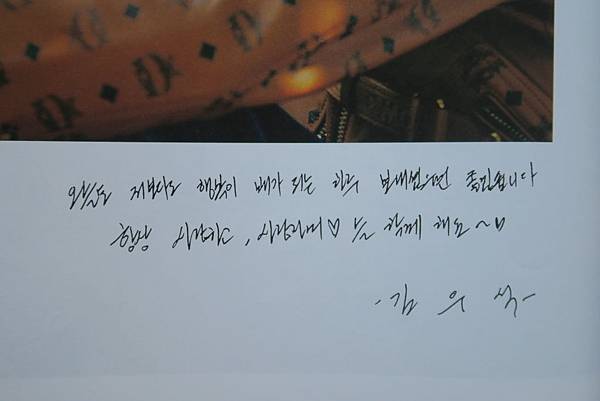 오늘도 행복이 배가 되는 하루 보내셨으면 좋겠습니다
항상 사랑하고, 사랑하며♡ 늘 함께 해요~♡
-김 우 석-